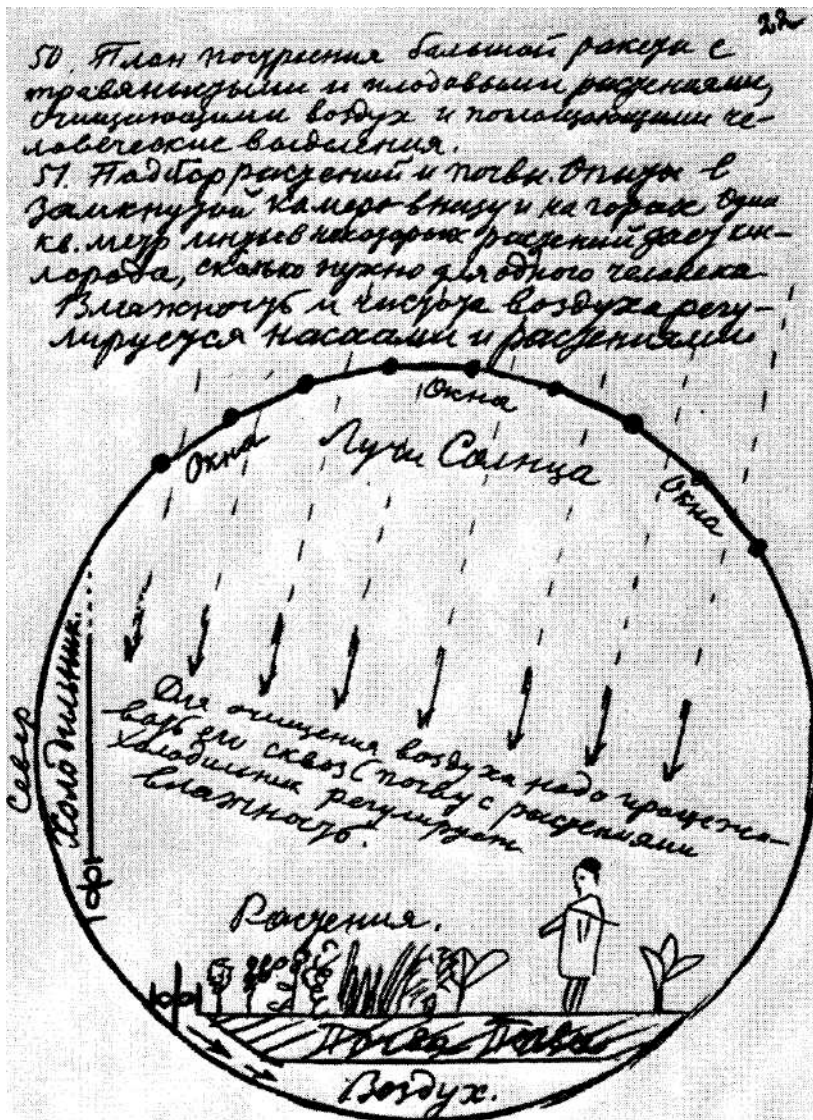 22
50. План построения большой ракеты с
травянистыми и плодовыми растениями,
очищающими воздух и поглощающими че-
ловеческие выделения.
51. Подбор растений и почвы. Опыты в
замкнутой камере внизу и на горах. Один
кв. метр листьев некоторых растений дает кис-
лорода, сколько нужно для одного человека
Влажность и чистота воздуха регу-
лируется насосами и растениями
Окна
Окна
Лучи Солнца
Окна
Север
Холодильник.
Для очищения воздуха надо процежи-
вать его сквозь почву с растениями
Холодильник регулирует
влажность.
Растения.
Почва Почва
Воздух.